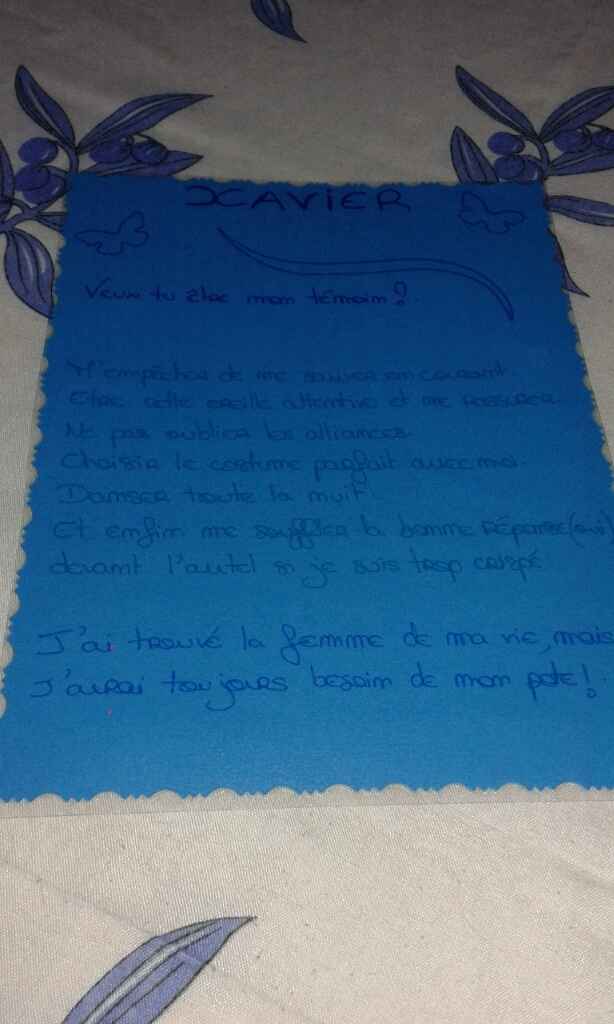 XAVIER
Veux tu être mon témoin?
M'empêcher de me sauver en courant.
Etre cette oreille attentive et me rassurer.
Ne pas oublier les alliances.
Choisir le costume parfait avec moi.
Danser toute la nuit.
Et enfin me souffler la bonne réponse (oui)
devant l'autel si je suis trop crispé
J'ai trouvé la femme de ma vie, mais
J'aurai toujours besoin de mon pote!